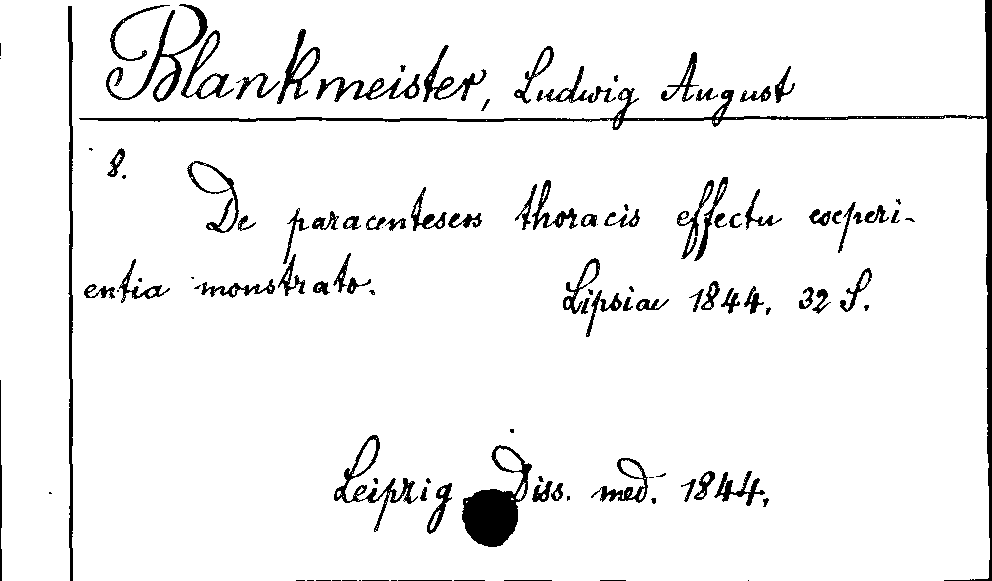 Blankmeister, Ludwig August
8.
De paracenteseos thoracis effectu experi-
entia monstrato.
Lipsiae 1844. 32 S.
Leipzig, Diss. med. 1844.